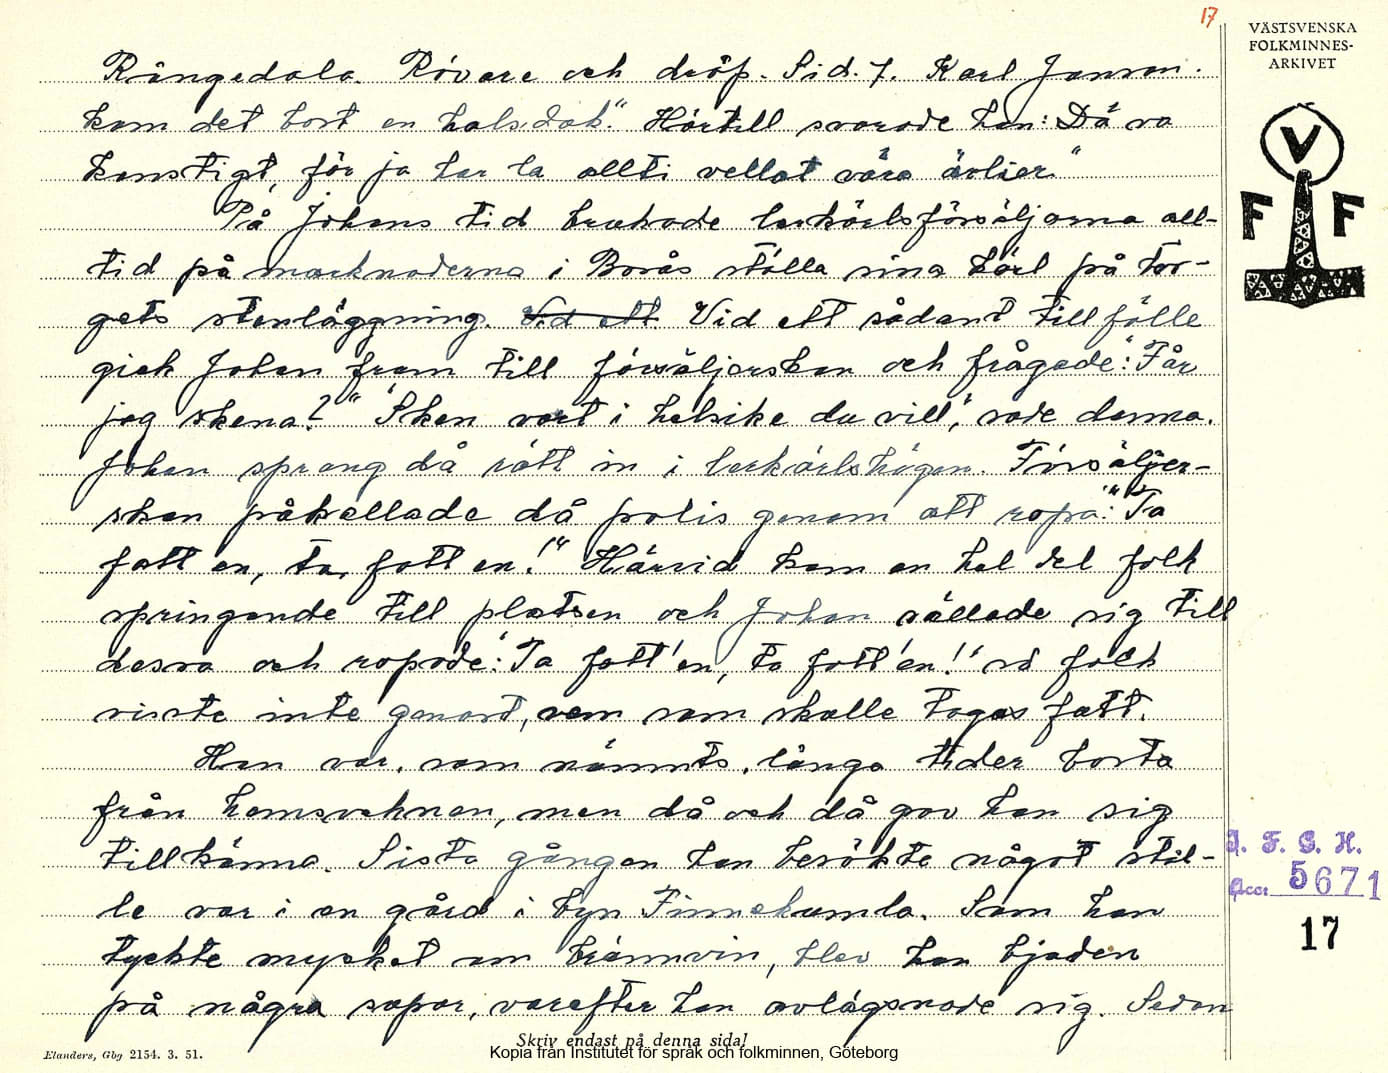 17
VÄSTSVENSKA
FOLKMINNES-
ARKIVET
Rångedala. Rövare och dråp. Sid. 7. Karl Janson.
kom det bort en halsduk." Härtill svarade han: "Då va
konstigt, för ja har la allti vellat våra ärlier."
På Johans tid brukade lerkärlsförsäljarna all-
tid på marknaderna i Borås ställa sina kärl på tor-
gets stenläggning. Vid ett Vid ett sådant tillfälle
gick Johan fram till försäljerskan och frågade: "Får
jag skena?" "Sken vart i helsike du vill", sade denna.
Johan sprang då rätt in i lerkärlshögen. Försäljer-
skan påkallade då polis genom att ropa: "Ta
fatt en, ta fatt en!" Härvid kom en hel del folk
springande till platsen och Johan sällade sig till
dessa och ropade: "Ta fatt'en, ta fatt'en!" så folk
visste inte genast, vem som skulle tagas fatt.
Han var, som nämnts, långa tider borta
från hemsocknen, men då och då gav han sig
tillkänna. Sista gången han besökte något stäl-
le var i en gård i byn Finnekumla. Som han
tyckte mycket om brännvin, blev han bjuden
på några supar, varefter han avlägsnade sig. Sedan
V
F F
I. F. G. H.
Acc. 5671
17
Skriv endast på denna sida!
Elanders, Gbg 2154. 3. 51.
Kopia från Institutet för språk och folkminnen, Göteborg